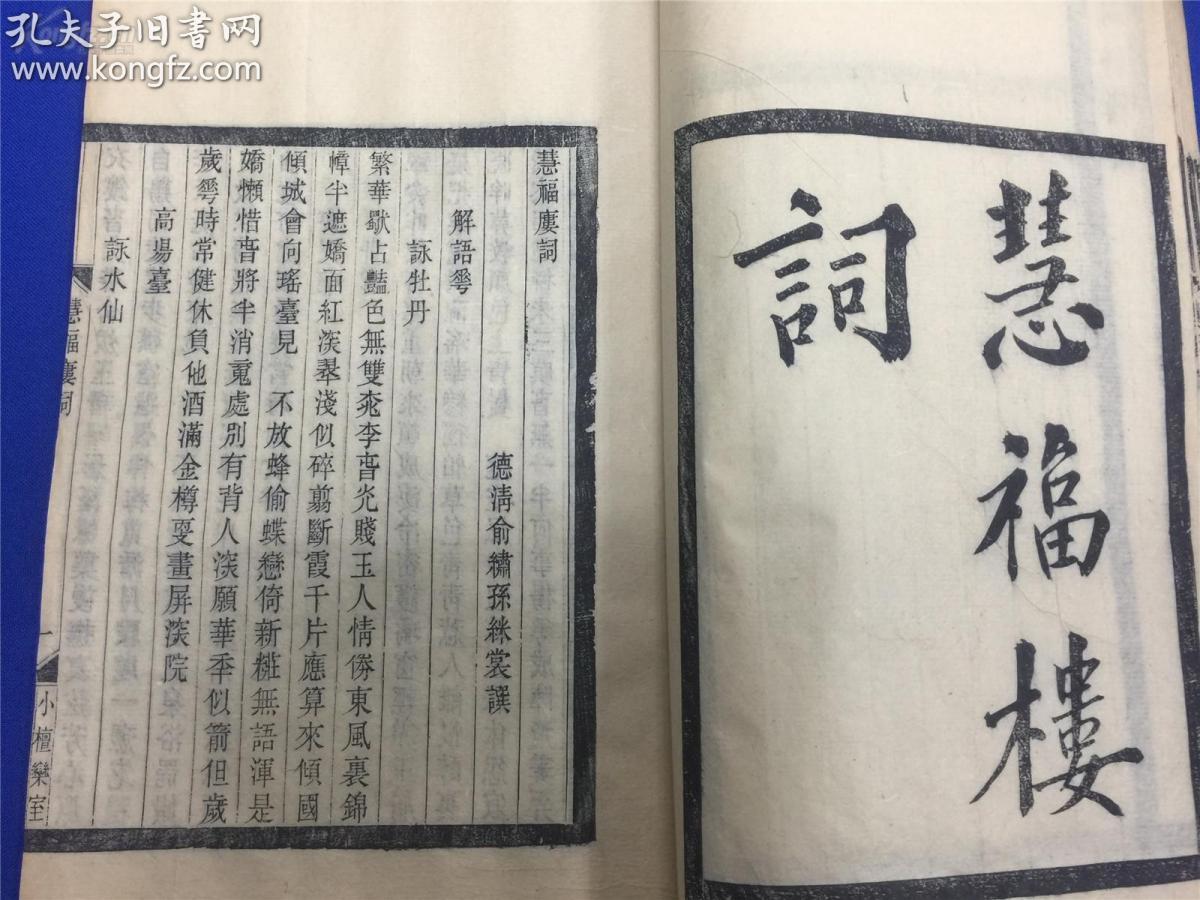 孔夫子旧书网
www.kongfz.com
慧福樓
詞
慧福廔詞
德淸俞繡孫綵裳譔
解語蕚
詠牡丹
繁華歇占豔色無雙桃李旾光賤玉人情傍東風裏錦
幛半遮嬌面紅深翠淺似碎翦斷霞千片應算來傾國
傾城會向瑤臺見　不放蜂偷蝶戀倚新糚無語渾是
嬌懶惜旾將半消䰟處別有背人深願華秊似箭但歲
歲蕚時常健休負他酒滿金樽㪅畫屏深院
高昜臺
詠水仙
慧福廔詞
一
小檀欒室